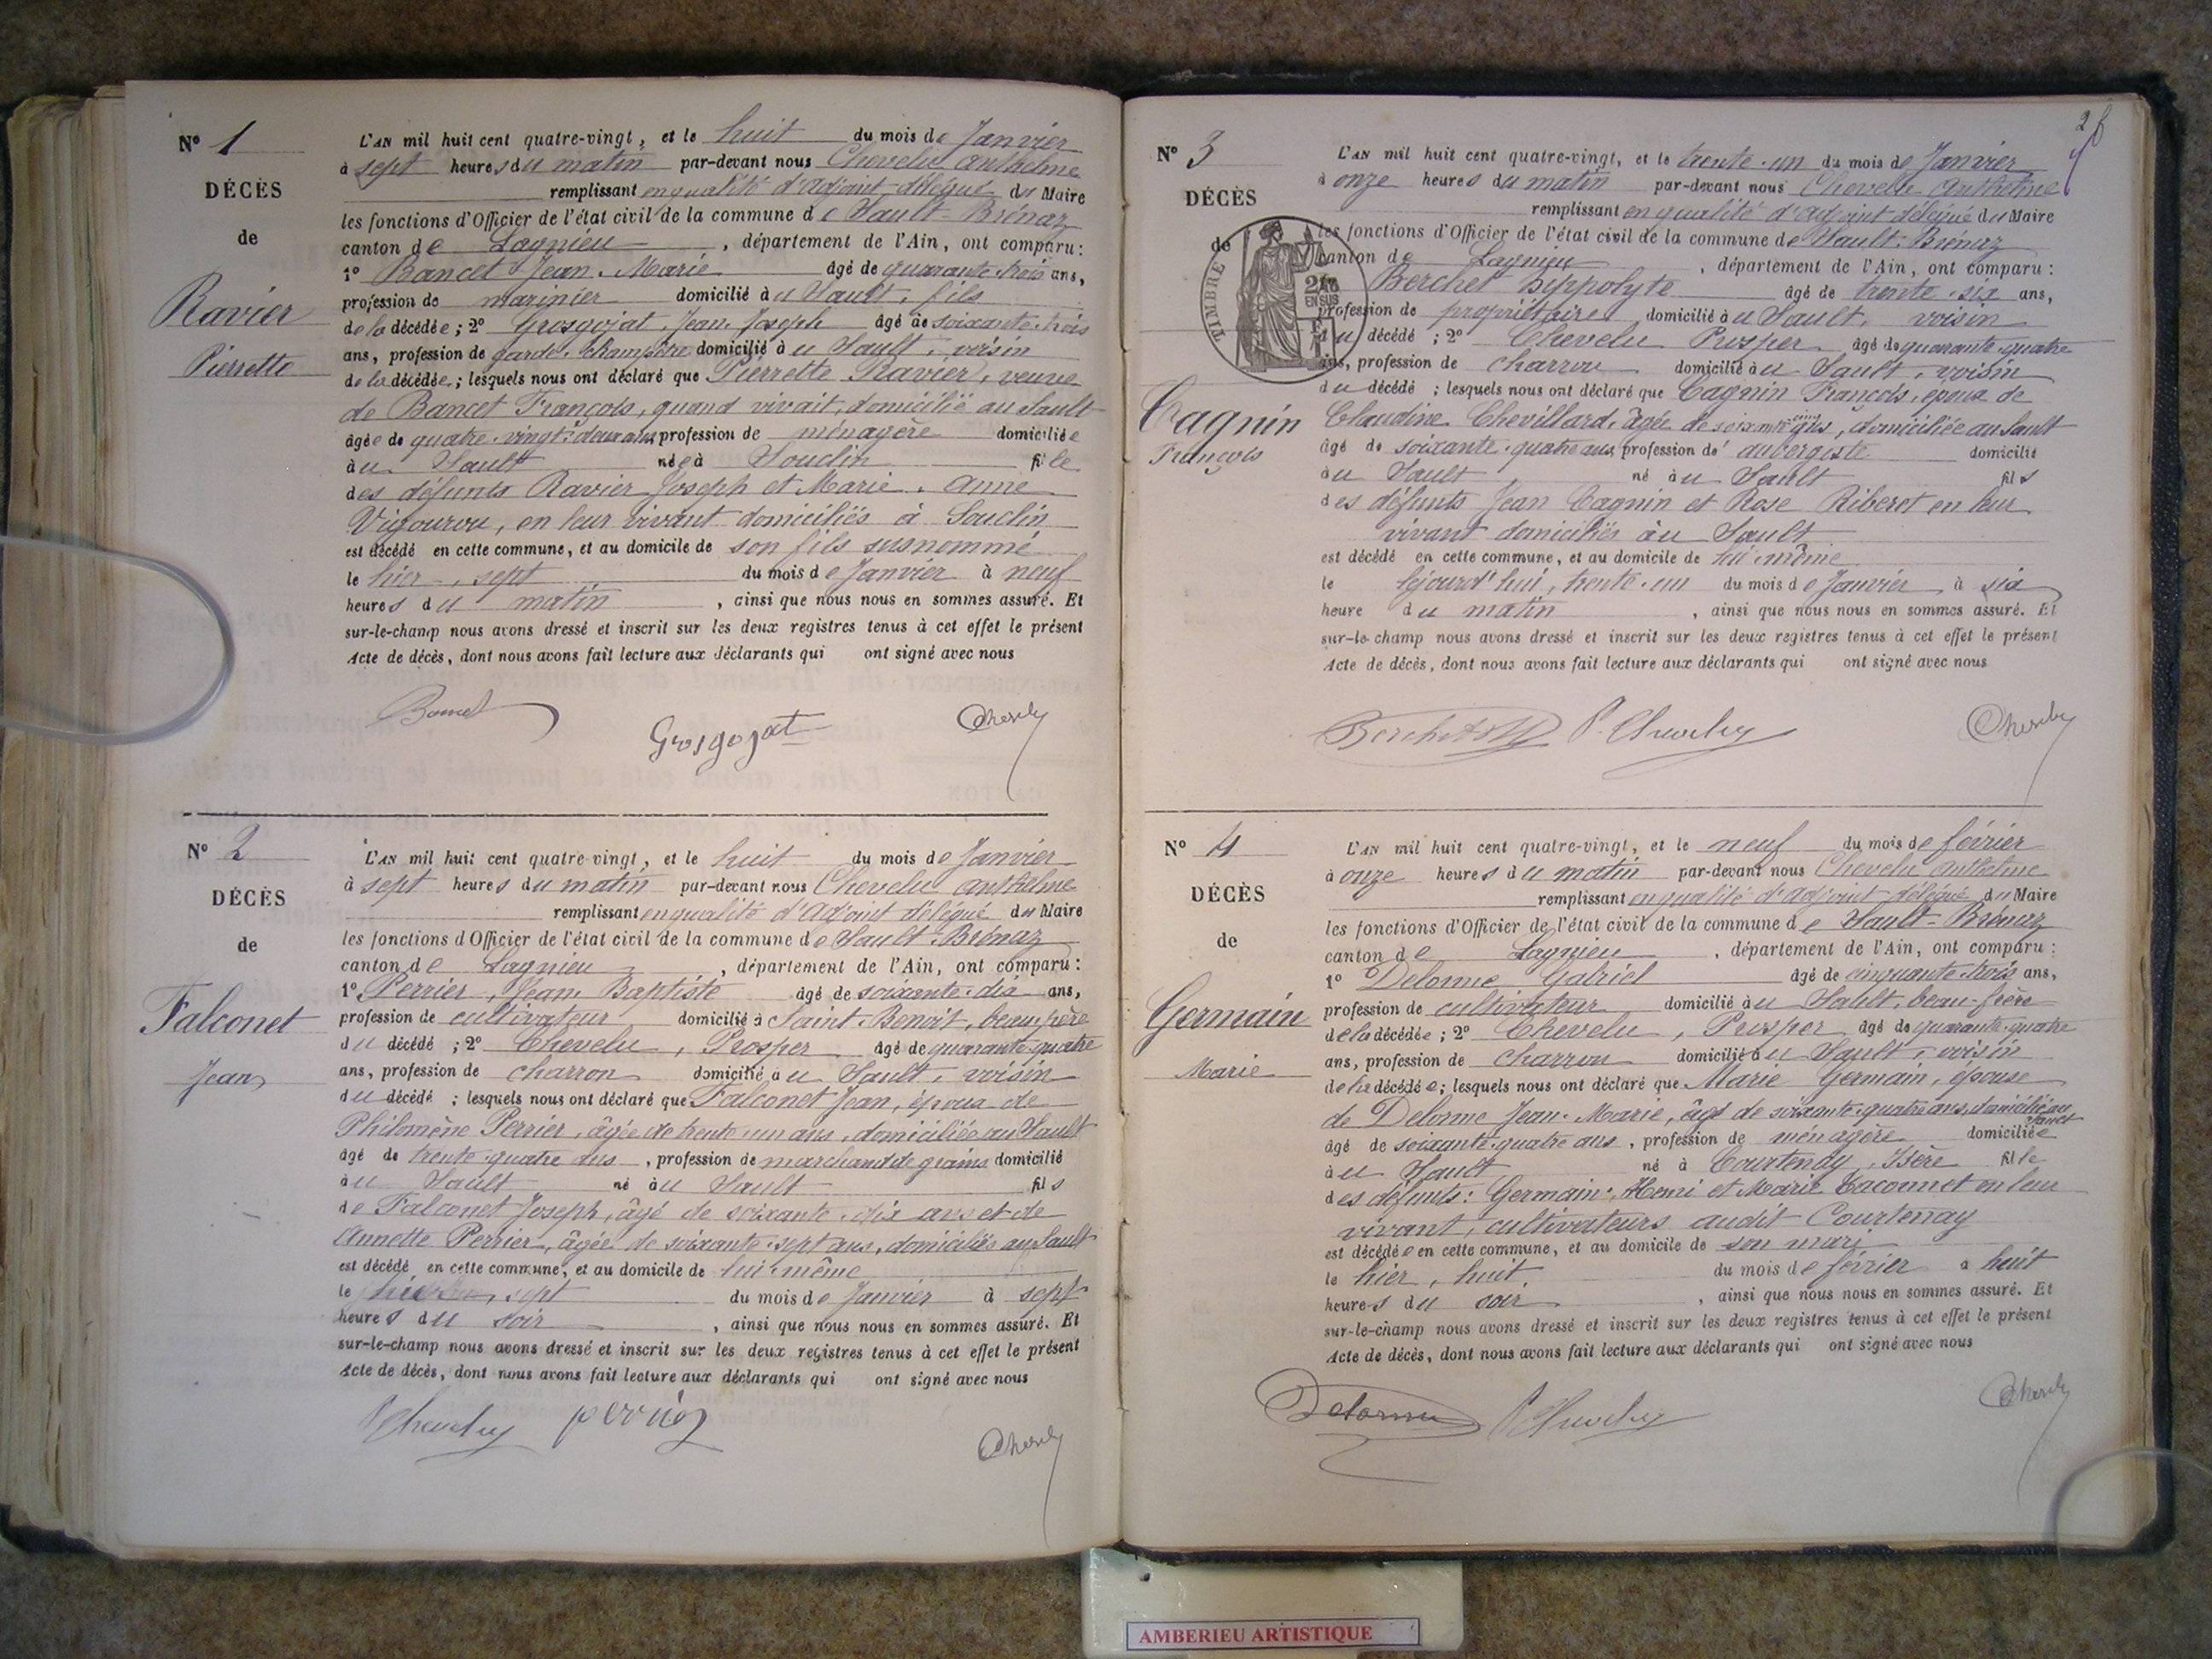 N° 1
DÉCÈS
de
Ravier
Pierrette
L'AN mil huit cent quatre-vingt, et le huit du mois de Janvier
à sept heures du matin par-devant nous Chevelu Anthelme
remplissant en qualité d'Adjoint délégué du Maire
les fonctions d'Officier de l'état civil de la commune de Sault-Brénaz
canton de Lagnieu, département de l'Ain, ont comparu :
1° Bancet Jean-Marie âgé de quarante-trois ans,
profession de marinier domicilié au Sault, fils
de la décédée ; 2° Grosgojat, Jean Joseph âgé de soixante-trois
ans, profession de garde-champêtre domicilié au Sault, voisin
de la décédée ; lesquels nous ont déclaré que Pierrette Ravier, veuve
de Bancet François, quand vivait, domicilié au Sault
âgée de quatre-vingt-deux ans profession de ménagère domiciliée
au Sault née à Souclin fille
des défunts Ravier Joseph et Marie-Anne
Vigourou, en leur vivant domiciliés à Souclin
est décédé en cette commune, et au domicile de son fils susnommé
le hier, sept du mois de Janvier à neuf
heures du matin, ainsi que nous nous en sommes assuré. Et
sur-le-champ nous avons dressé et inscrit sur les deux registres tenus à cet effet le présent
Acte de décès, dont nous avons fait lecture aux déclarants qui ont signé avec nous
Bancet
Grosgojat
Chevelu
N° 2
DÉCÈS
de
Falconet
Jean
L'AN mil huit cent quatre-vingt, et le huit du mois de Janvier
à sept heures du matin par-devant nous Chevelu Anthelme
remplissant en qualité d'Adjoint délégué du Maire
les fonctions d'Officier de l'état civil de la commune de Sault-Brénaz
canton de Lagnieu, département de l'Ain, ont comparu :
1° Perrier, Jean Baptiste âgé de soixante-dix ans,
profession de cultivateur domicilié à Saint-Benoit, beau-père
du décédé ; 2° Chevelu, Prosper âgé de quarante-quatre
ans, profession de charron domicilié au Sault, voisin
du décédé ; lesquels nous ont déclaré que Falconet Jean, époux de
Philomène Perrier, âgée de trente-un ans, domiciliée au Sault
âgé de trente-quatre ans, profession de marchand de grains domicilié
au Sault né au Sault fils
de Falconet Joseph, âgé de soixante-dix ans et de
Annette Perrier, âgée de soixante-sept ans, domiciliés au Sault
est décédé en cette commune, et au domicile de lui-même
le hier, sept du mois de Janvier à sept
heures du soir, ainsi que nous nous en sommes assuré. Et
sur-le-champ nous avons dressé et inscrit sur les deux registres tenus à cet effet le présent
Acte de décès, dont nous avons fait lecture aux déclarants qui ont signé avec nous
P Chevelu
perrier
Chevelu
N° 3
DÉCÈS
de
TIMBRE
EN SUS
Cagnin
François
L'AN mil huit cent quatre-vingt, et le trente-un du mois de Janvier
à onze heures du matin par-devant nous Chevelu Anthelme
remplissant en qualité d'adjoint délégué du Maire
les fonctions d'Officier de l'état civil de la commune de Sault-Brénaz
canton de Lagnieu, département de l'Ain, ont comparu :
Berchet Hippolyte âgé de trente-six ans,
profession de propriétaire domicilié au Sault, voisin
du décédé ; 2° Chevelu Prosper âgé de quarante-quatre
ans, profession de charron domicilié au Sault, voisin
du décédé ; lesquels nous ont déclaré que Cagnin François, époux de
Claudine Chevillard, âgée de soixante-cinq ans, domiciliée au Sault
âgé de soixante-quatre ans profession d'aubergiste domicilié
au Sault né au Sault fils
des défunts Jean Cagnin et Rose Riberot en leur
vivant domiciliés au Sault
est décédé en cette commune, et au domicile de lui-même
le cejourd'hui, trente-un du mois de Janvier à six
heure du matin, ainsi que nous nous en sommes assuré. Et
sur-le-champ nous avons dressé et inscrit sur les deux registres tenus à cet effet le présent
Acte de décès, dont nous avons fait lecture aux déclarants qui ont signé avec nous
Berchet
P. Chevelu
Chevelu
N° 4
DÉCÈS
de
Germain
Marie
L'AN mil huit cent quatre-vingt, et le neuf du mois de février
à onze heures du matin par-devant nous Chevelu Anthelme
remplissant en qualité d'adjoint délégué du Maire
les fonctions d'Officier de l'état civil de la commune de Sault-Brénaz
canton de Lagnieu, département de l'Ain, ont comparu :
1° Delorme Gabriel âgé de cinquante-trois ans,
profession de cultivateur domicilié au Sault, beau-frère
de la décédée ; 2° Chevelu, Prosper âgé de quarante-quatre
ans, profession de charron domicilié au Sault, voisin
de la décédée ; lesquels nous ont déclaré que Marie Germain, épouse
de Delorme Jean-Marie, âgé de soixante-quatre ans, domicilié au Sault
âgé de soixante-quatre ans, profession de ménagère domiciliée
au Sault né à Courtenay, Isère fille
des défunts : Germain Hemi et Marie Caconnet en leur
vivant, cultivateurs audit Courtenay
est décédée en cette commune, et au domicile de son mari
le hier, huit, du mois de février à huit
heures du soir, ainsi que nous nous en sommes assuré. Et
sur-le-champ nous avons dressé et inscrit sur les deux registres tenus à cet effet le présent
Acte de décès, dont nous avons fait lecture aux déclarants qui ont signé avec nous
Delorme
P Chevelu
Chevelu
AMBERIEU ARTISTIQUE